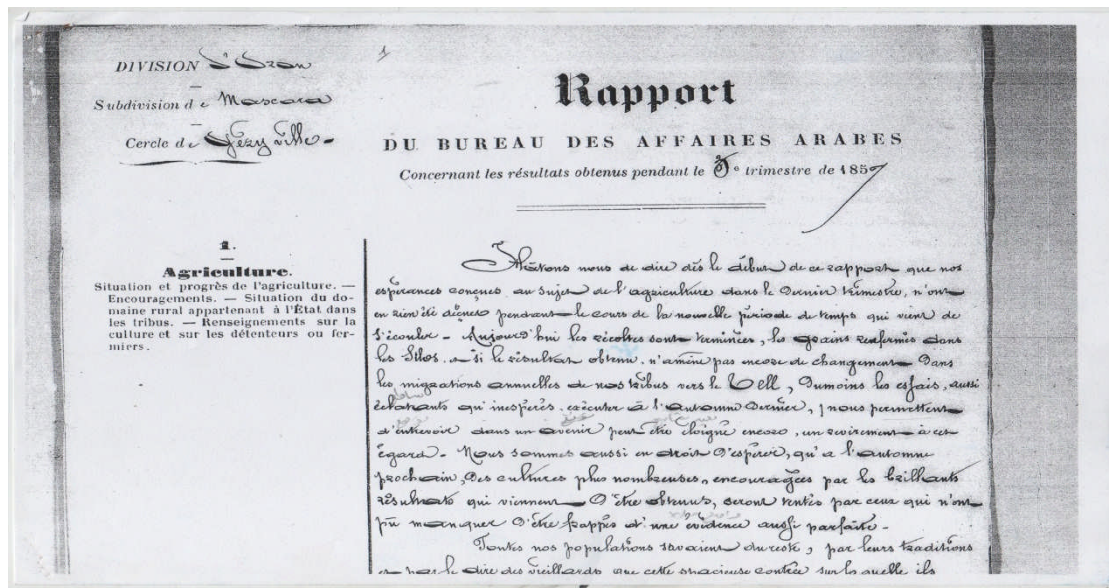 DIVISION d'Oran
Subdivision de Mascara
Cercle de Géryville
1
Rapport
DU BUREAU DES AFFAIRES ARABES
Concernant les résultats obtenus pendant le 3e trimestre de 1857
1.
Agriculture.
Situation et progrès de l'agriculture. —
Encouragements. — Situation du do-
maine rural appartenant à l'État dans
les tribus. — Renseignements sur la
culture et sur les détenteurs ou fer-
miers.
Hâtons nous de dire dès le début de ce rapport que nos
espérances conçues au sujet de l'agriculture dans le dernier trimestre, n'ont
en rien été déçues pendant le cours de la nouvelle période de temps qui vient de
s'écouler - Aujourd'hui les récoltes sont terminées, les grains renfermés dans
les Silos, si le résultat obtenu n'amène pas encore de changement dans
les migrations annuelles de nos tribus vers le Tell, dumoins les essais, aussi
éclatants qu'inespérés exécuter à l'automne dernier, nous permettent
d'entrevoir dans un avenir peut être éloigné encore, un revirement à cet
égard - Nous sommes aussi en droit d'espérer, qu'a l'automne
prochain, des cultures plus nombreuses, encouragées par les brillants
résultats qui viennent d'être obtenus, seront tentés par ceux qui n'ont
pû manquer d'être frappés d'une évidence aussi parfaite -
Toutes nos populations savaient dureste, par leurs traditions
et par le dire des vieillards que cette spacieuse contrée sur laquelle ils